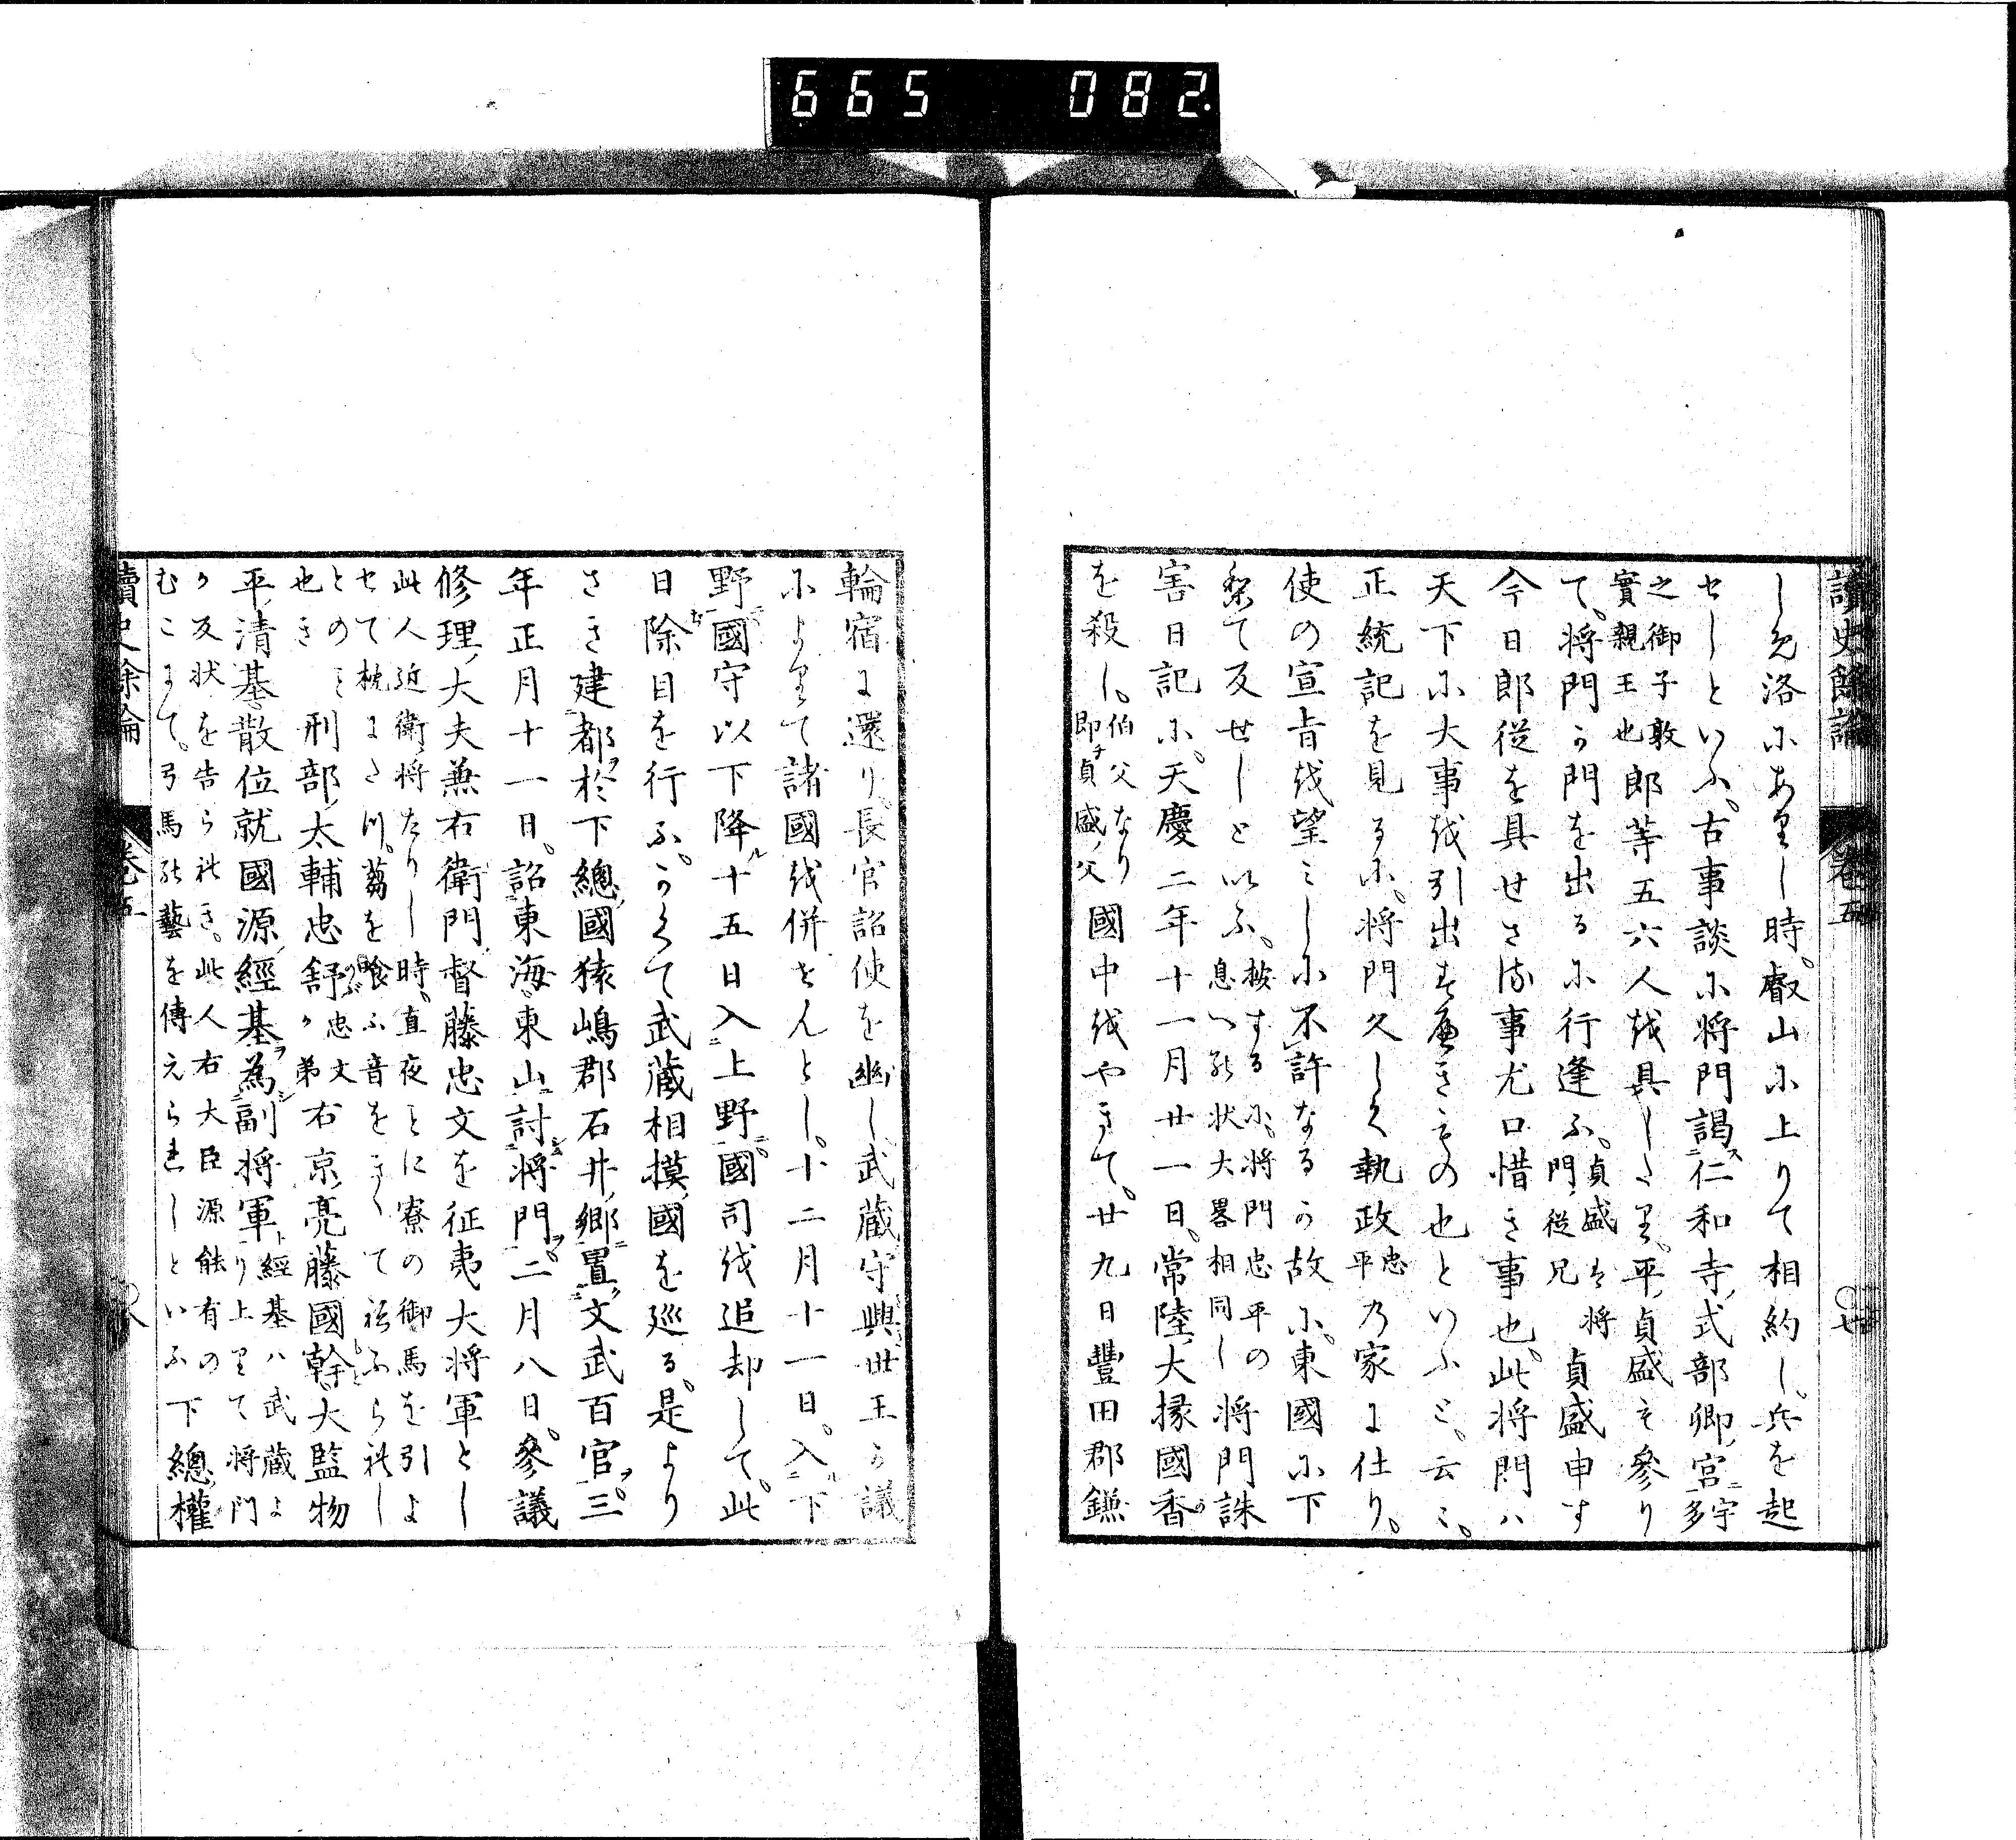 665 082
讀史餘論 卷五
し免洛にありし時。叡山に上りて相約し。兵を起
せしといふ。古事談に將門謁仁和寺式部卿宮宇多
之御子敦
實親王也
郎等五六人を具したり。平貞盛も參り
て。將門が門を出るに行逢ふ。貞盛は將
門從兄
貞盛申す
今日郎從を具せさる事尤口惜き事也。此將門ハ
天下に大事を引出すべきもの也といふと。云々。
正統記を見るに。將門久しく執政忠
平の家に仕り。
使の宣旨を望みしに不許なるが故に。東國に下
梨て反せしと以ふ。按するに。將門忠平の
息への状大畧相同し
將門誅
害日記に。天慶二年十一月廿一日。常陸大掾國香
を殺し。伯父なり
即チ貞盛ノ父
國中をやきて。廿九日豐田郡鎌
輪宿に還り長官詔使を幽し武蔵守興世王が議
によりて諸國を併せんとし。十二月十一日。入下
野國守以下降十五日入上野國司を追却して。此
日除目を行ふ。かくて武蔵相摸國を巡る。是より
さき建都於下總國猿嶋郡石井郷置文武百官。三
年正月十一日。詔東海東山討將門。二月八日。參議
修理大夫兼右衛門督藤忠文を征夷大将軍とし
此人近衛将たりし時。直夜ことに寮の御馬を引よ
せて枕にたつ。蒭を喰ふ音をきくて祢ふら礼し
とのミ
也き
刑部太輔忠舒忠文
が弟
右京亮藤國幹大監物
平清基散位就國源經基為副将軍經基ハ武蔵よ
り上りて將門
が反状を告ら礼き。此人右大臣源能有の
むこにて。弓馬の藝を傳えられしといふ
下總權
讀史餘論 卷五